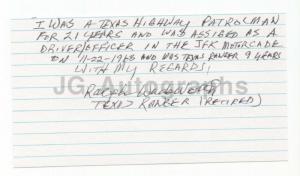 I WAS A TEXAS HIGHWAY PATROLMAN
FOR 21 YEARS AND WAS ASSIGED AS A
DRIVER/OFFICER IN THE JFK MOTORCADE
ON 11-22-1963 AND WAS TEXAS RANGER 9 YEARS
WITH MY REGARDS,
JG Autographs
TEXAS RANGER (RETIRED)